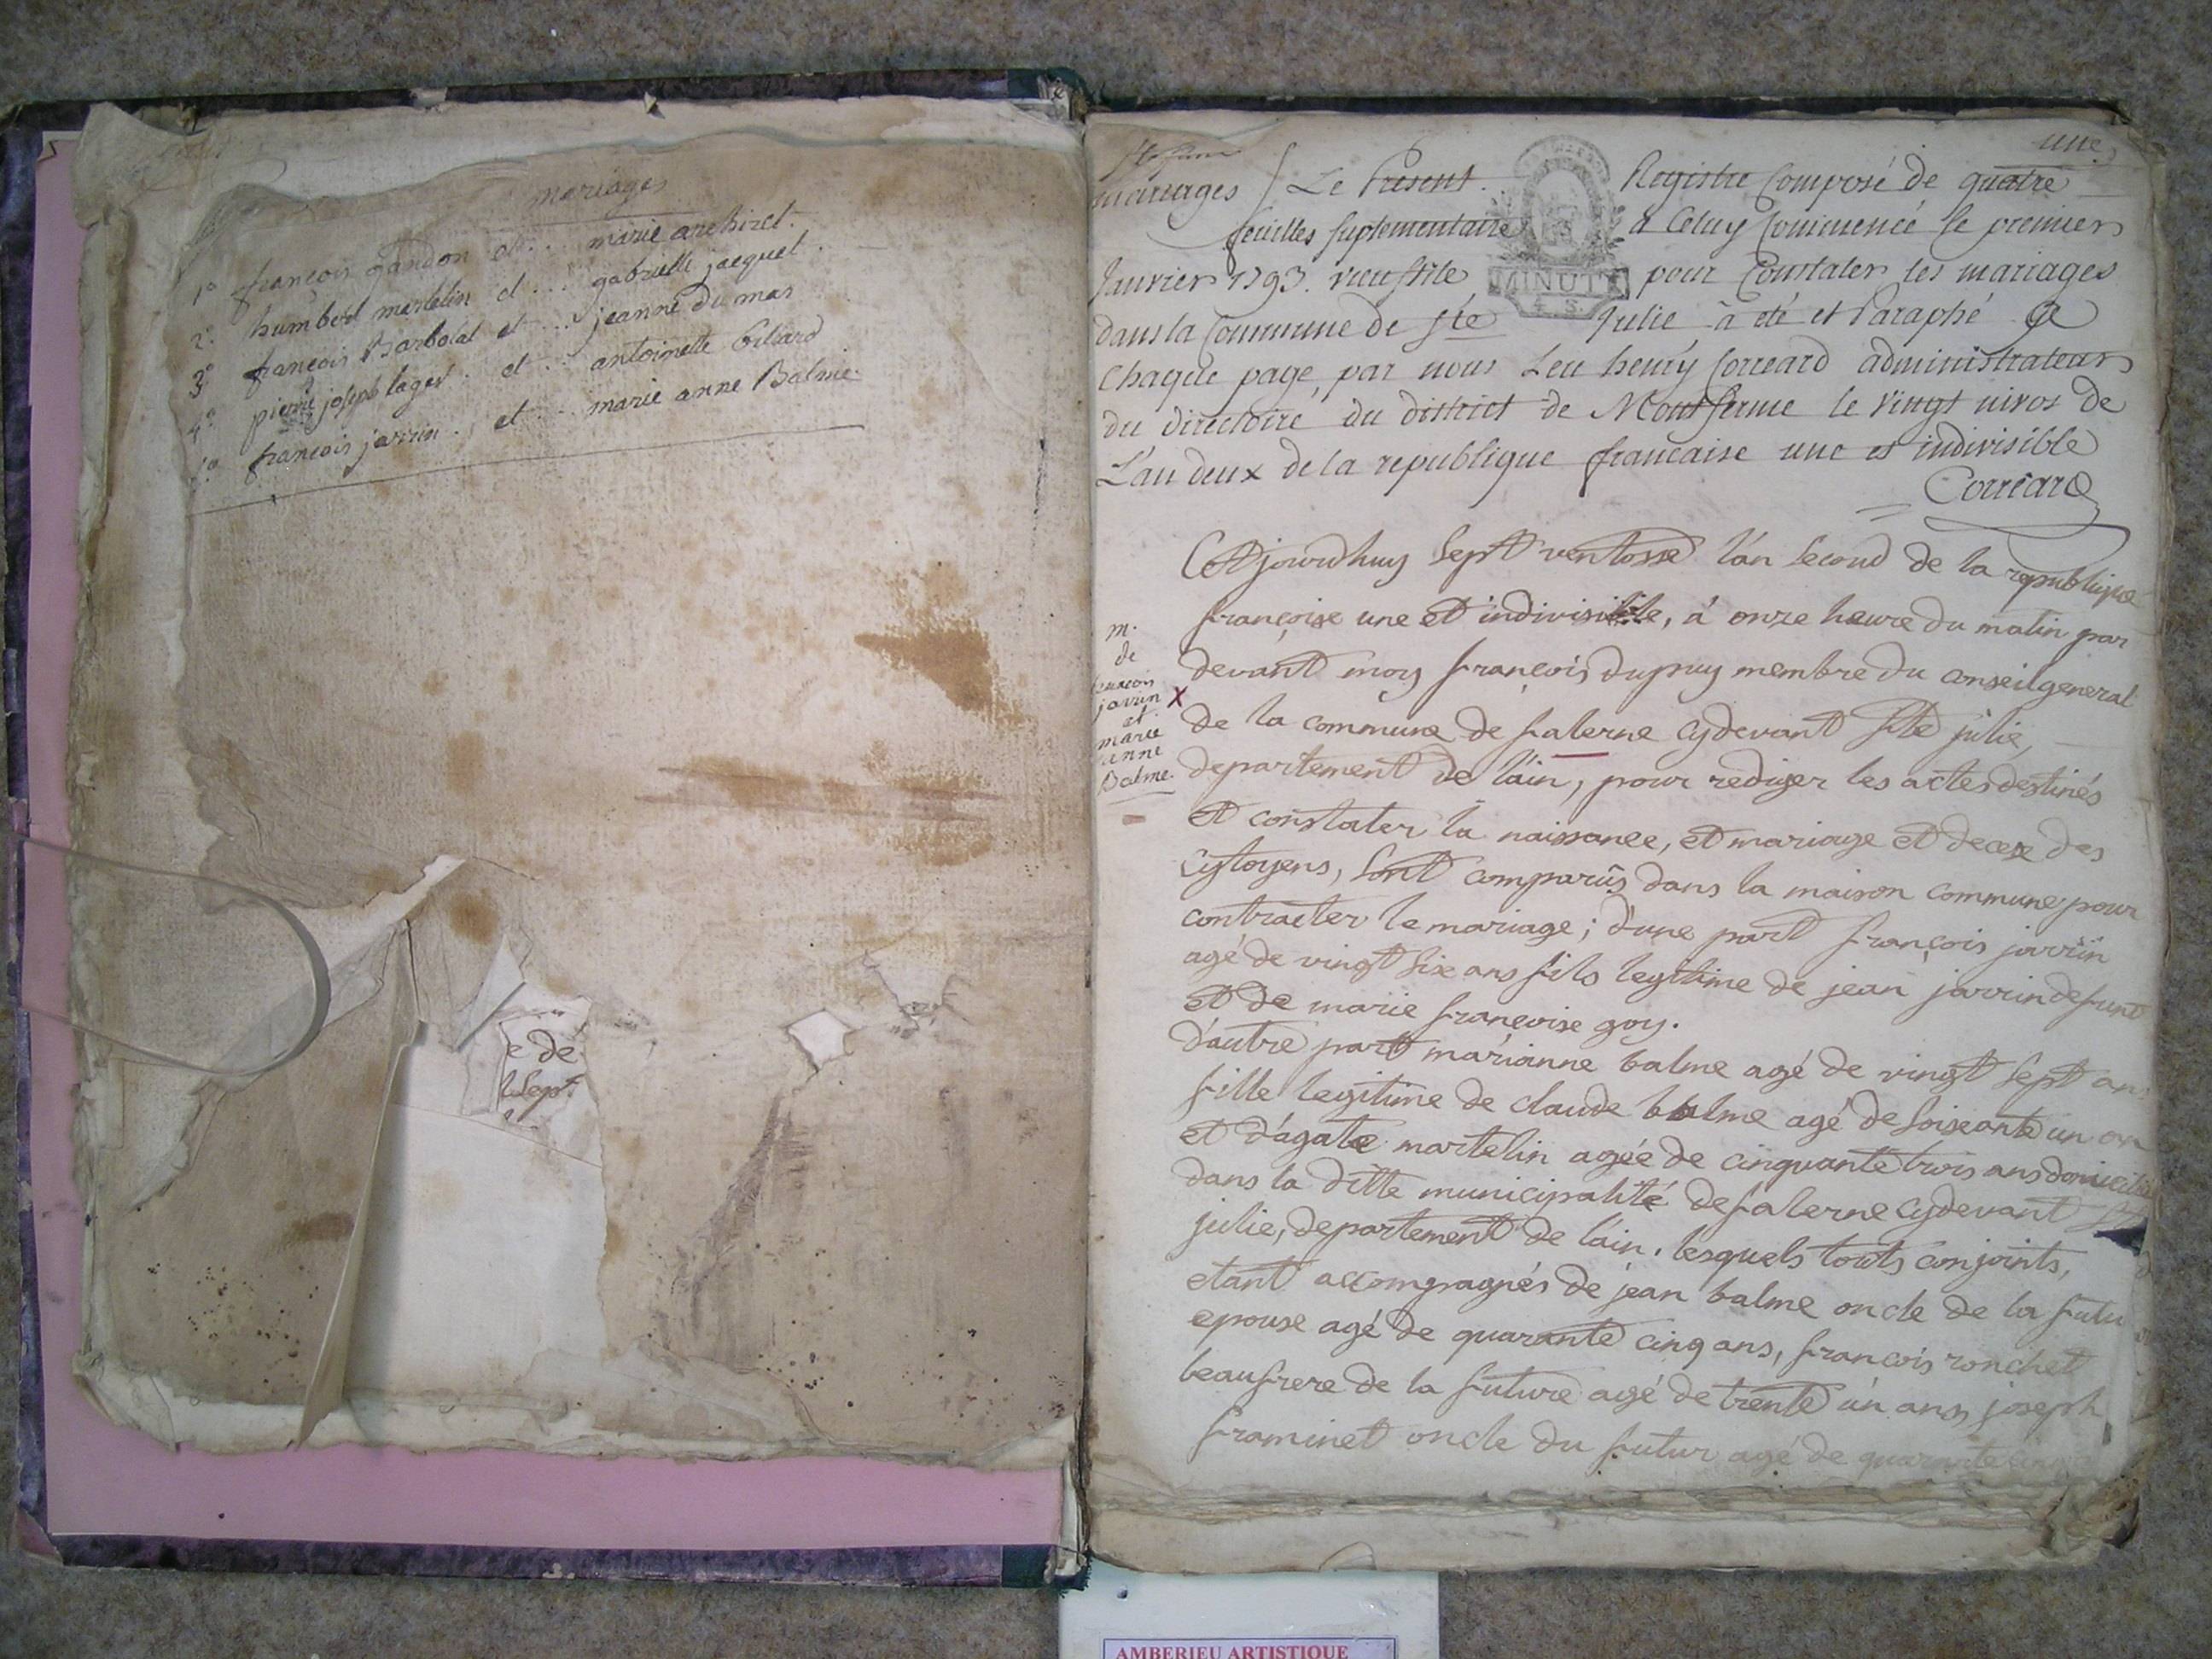 mariages
1º françois gandon et ... marie archizet.
2º humbert martelin et ... gabrielle jacquet.
3º françois Barbolat et ... jeanne du mas
4º pierre joseph lager. et ... antoinette bibard
françois jarrin. et ... marie anne Balme.
e dé
Sept
une
mariages / Le Present Registre Composé de quatre
feuilles suplementaire a Celuy Commencé le premier
Janvier 1793. vieu stile pour Constater les mariages
MINUTE
4. S.
dans la Commune de Ste Julie à été et Paraphé a
Chaque page par nous Leu henry Correard administrateur
du directoire du district de Montferme le vingt nivos de
L'an deux de la republique francaise une et indivisible
Correard
m.
de
francois
jarrin X
et
marie
anne
Balme.
Cet jourdhuy Sept ventosse l'an Second de la republique
françoise une et indivisible, à onze heure du matin par
devant moy françois dupuy membre du conseil general
de la commune de falerne cydevant Ste julie,
departement de l'ain, pour rediger les actes destinés
et constater la naissance, et mariage et decex des
cytoyens, Sont comparûs dans la maison commune pour
contracter le mariage; d'une part françois jarrin
agé de vingt Six ans fils legitime de jean jarrin defunt
et de marie françoise goy.
d'autre part marianne balme agé de vingt Sept an
fille legitime de claude balme agé de Soixante un an
et d'agate martelin agée de cinquante trois ans domicilié
dans la ditte municipalité de falerne cydevant St
julie, departement de l'ain. lesquels touts conjoints,
etant accompagnés de jean balme oncle de la futu
epouse agé de quarante cinq ans, francois ronchet
beaufrere de la future agé de trente un ans joseph
framinet oncle du futur agé de quarante cinq
AMBERIEU ARTISTIQUE